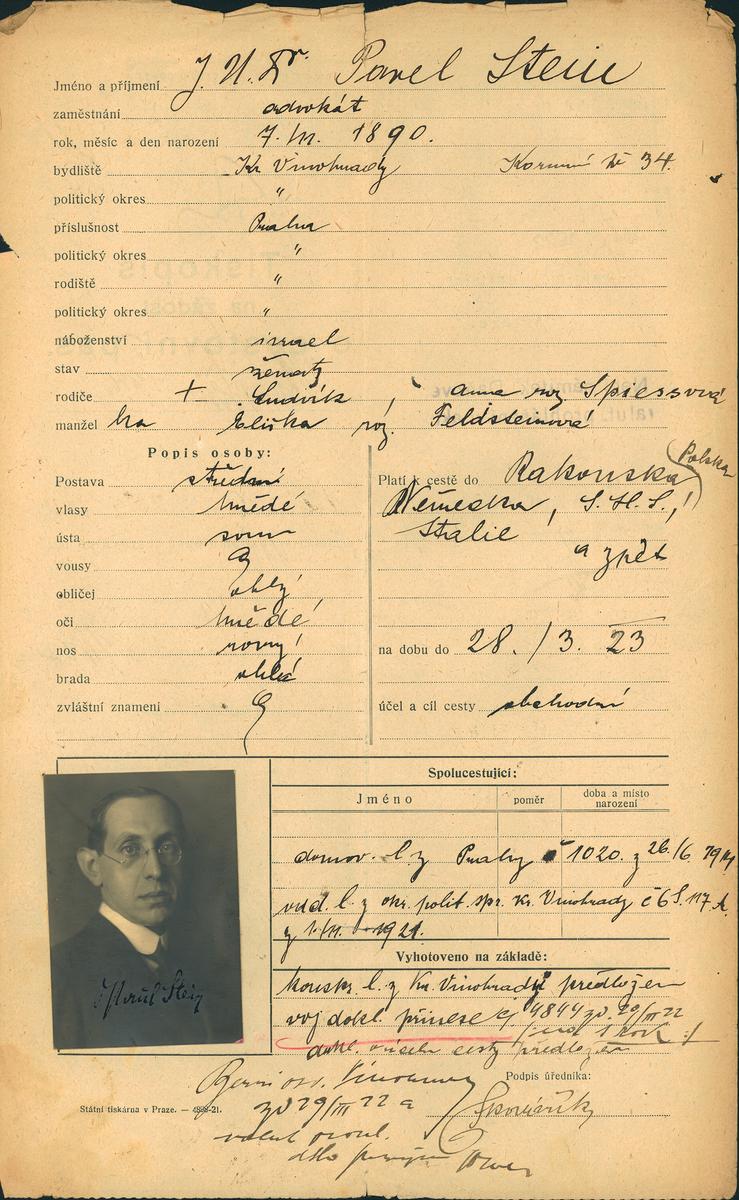 Jméno a příjmení J. U. Dr. Pavel Stein
zaměstnání advokát
rok, měsíc a den narození 7./VI. 1890.
bydliště Kr. Vinohrady Korunní tř 34.
politický okres "
příslušnost Praha
politický okres "
rodiště "
politický okres "
náboženství israel
stav ženatý
rodiče + Ludvík, Anna roz. Spiessová
manžel ka Eliška roz. Feldsteinová
Popis osoby:
Postava střední
vlasy hnědé
ústa soum
vousy
obličej oblý
oči hnědé
nos rovný
brada oblá
zvláštní znamení
Platí k cestě do Rakouska (Polska)
Německa, S.H.S.,
Italie
a zpět
na dobu do 28./3. 23
účel a cíl cesty obchodní
Spolucestující:
Jméno poměr doba a místo narození
domov. l. z Prahy č 1020. z 26./6. 1914
vud. l. z okr. polit. spr. Kr. Vinohrady č 6 S. 117 A.
z 1921.
Vyhotoveno na základě:
konskr. l. z Kr. Vinohrady předložen
voj dokl. přinese čj 4844 zd. 20/III 22
dokl. o účelu cesty předložen
Podpis úředníka:
Vinohrady
zd 29/III 22 a
Státní tiskárna v Praze. — 4898-21.
Dr Paul Stein